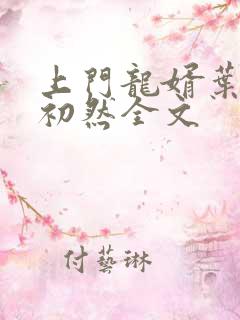 上門龍婿葉
初然全文
付藝琳